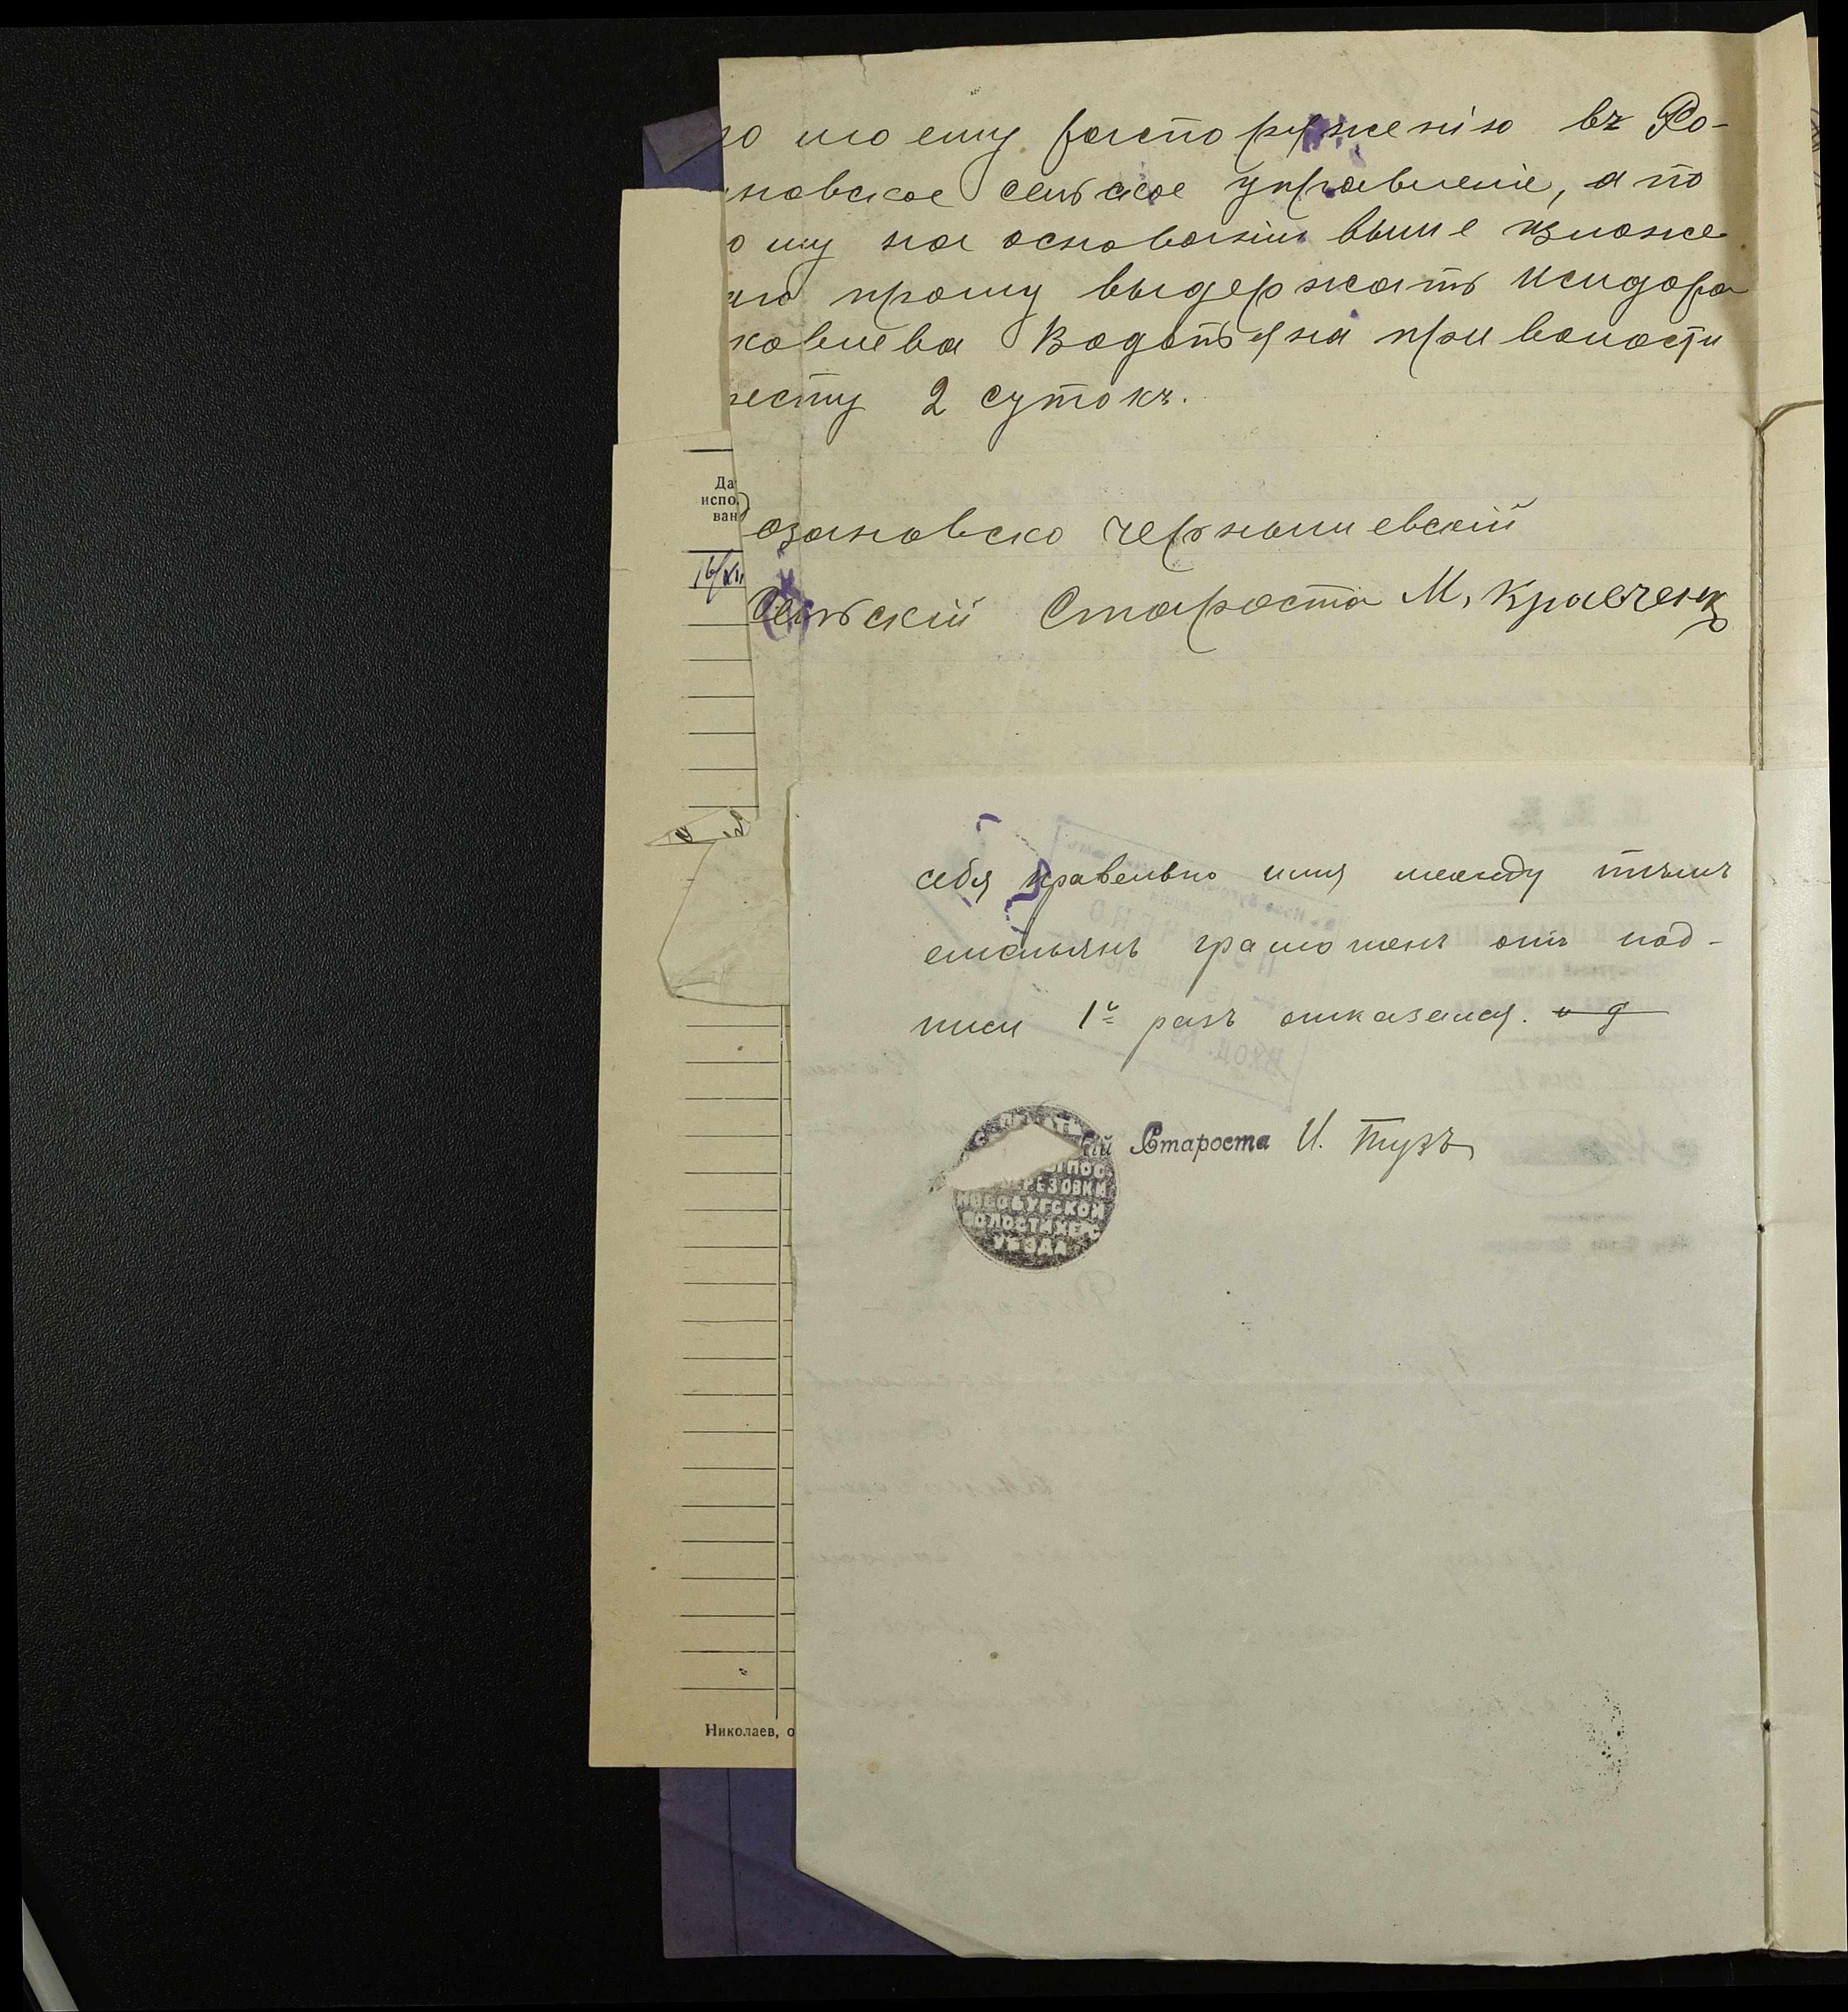 ю моему распоряженію въ Ро-
новское сельское управленіе, а по
ому на основаніи выше изложе
прошу выдержать Исидора
ковлева Водотяна при волости
ресту 2 сутокъ.
озановско Чернышевскій
Сельскій Староста М. Кравченк
Да
испо
ван
16/XII
себя правельно имя между тѣмъ
емельянъ грамотенъ отъ под-
писи 1й разъ отказался. и д
ій Староста И. Тузъ
ПОС.
РЕЗОВКИ
НОВОБУГСКОЙ
ВОЛОСТИ ХЕРС
УѢЗДА
Николаев, о